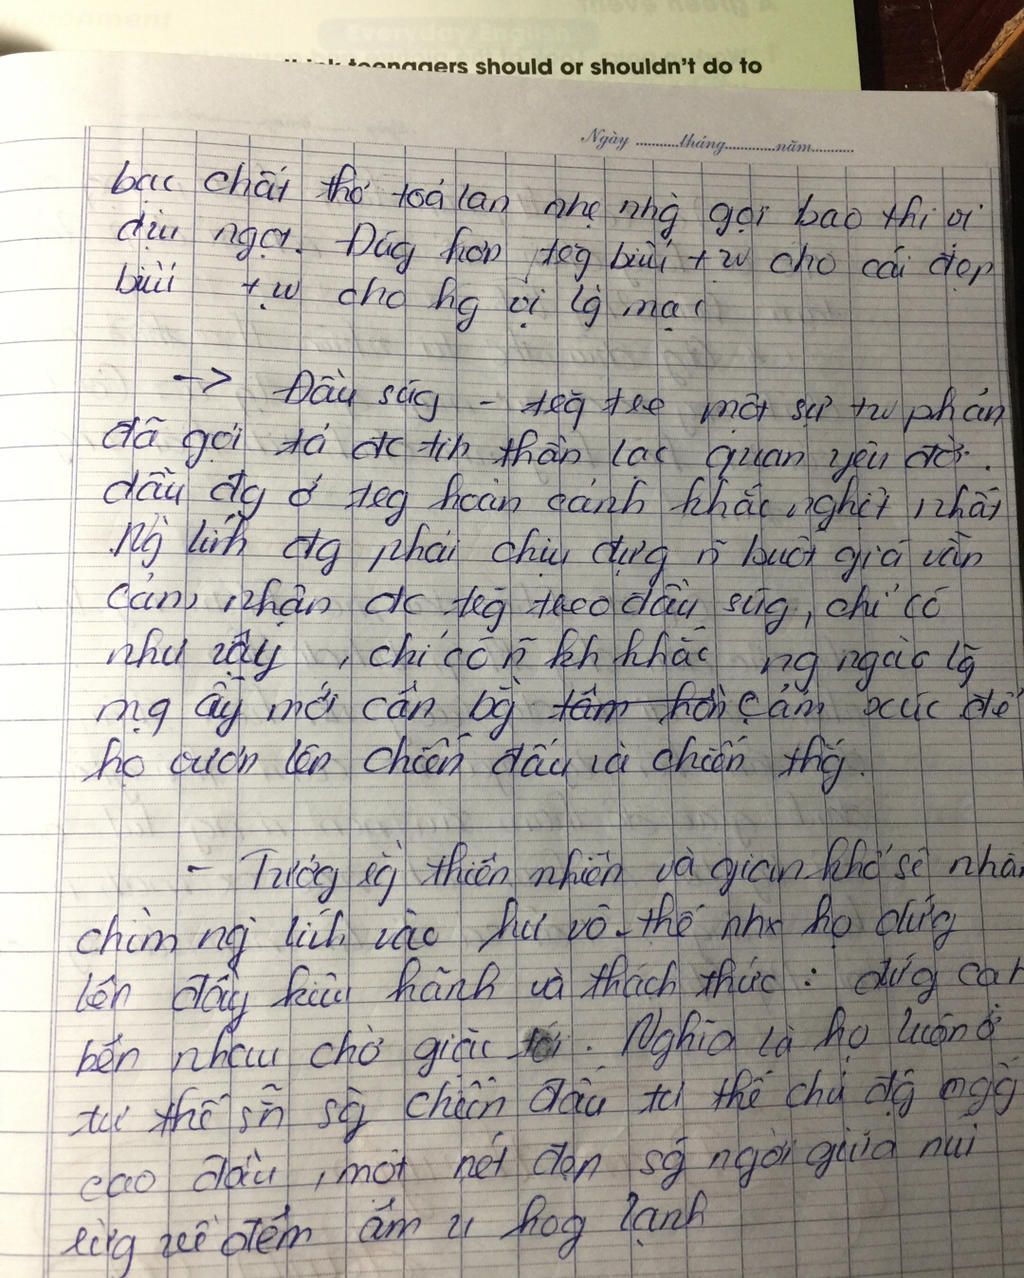 teenagers should or shouldn't do to
Ngày ...........tháng............năm..........
bạc chất thơ toả lan nhẹ nhg̀ gợi bao thi vị
dịu ngọt. Đúg hơn, tég biểu tự cho cái đẹp
biểu tự cho hg vị lg̃ mạc
-> Đầu súg - tég tre một sự tư phản
đã gợi tả đc tih thần lạc quan yêu đời.
dẫu đg ở teg hoàn cảnh khắc nghiệt nhất
Ng̀ lính đg phải chịu đựg n~ buốt giá vẫn
cảm nhận đc teg̃ treo đầu súg, chỉ có
như vậy, chỉ có n~ kh khắc ng ngác lg̃
mg ấy mới cần bg̀ tâm hồn cảm xúc để
họ vươn lên chiến đấu và chiến thg̃.
- Tưởg eg̀ thiên nhiên và gian khổ sẽ nhấn
chìm ng̀ lính vào hư vô. thế nhg họ đứg
lên đầy kiêu hãnh và thách thức: đứg cạh
bên nhau chờ giặc tới. Nghĩa là họ luôn ở
tư thế sẵn sg̀ chiến đấu tư thế chủ độg ngg̉
cao đầu, một nét đẹp sg ngời giữa núi
rừg về đêm âm u hog lạnh